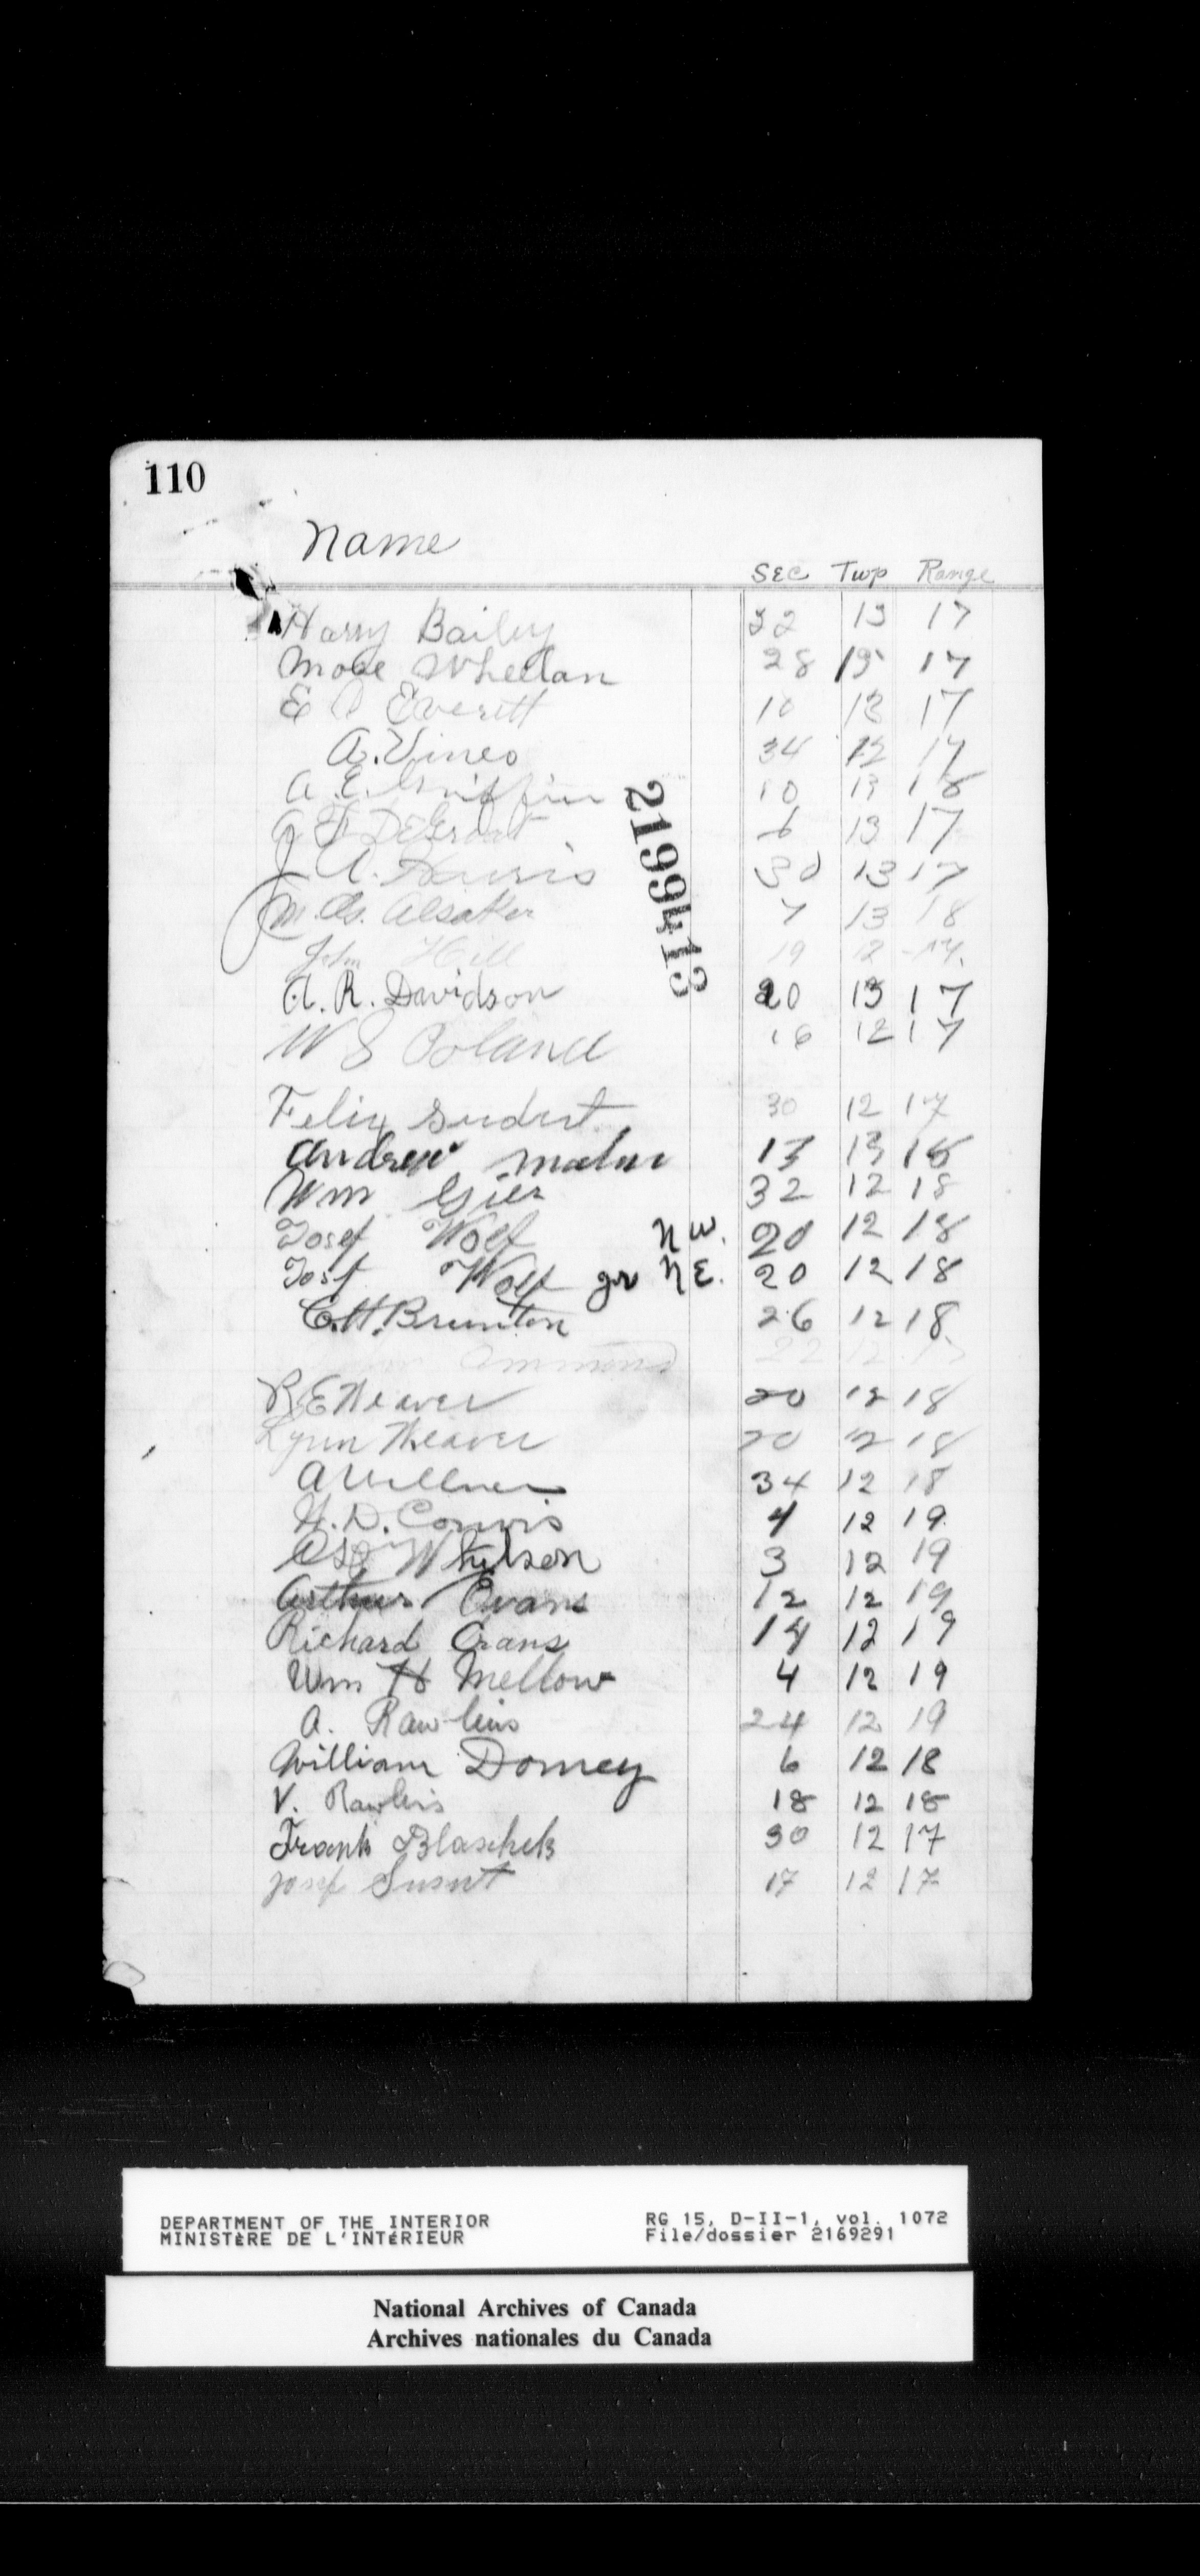 110
Name
Sec Twp Range
Harry Bailey 32 13 17
Mose Whellan 28 13 17
E Everett 10 13 17
A. Vines 34 12 17
A. E. Griffin 10 13 18
DeGroat 6 13 17
J. A. Harris 30 13 17
M. Alsaker 7 13 18
John Hill 19 12
A. R. Davidson 20 13 17
W S Boland 16 12 17
2199413
Felix 30 12 17
Andrew 13
Wm Giles 32 12 18
Josef Wolf N W. 20 12 18
Josf Wolf jr N E. 20 12 18
C. H. Brunton 26 12 18
Ammond 22 12
R E Weaver 20 12 18
Lynn Weaver 20 12 18
A Willner 34 12 18
H. D. Conris 4 12 19
Whitson 3 12 19
Arthur Evans 12 12 19
Richard Crans 14 12 19
Wm H Mellow 4 12 19
A. Rawlins 24 12 19
William Domey 6 12 18
V. Rawlins 18 12 18
Frank Blaschek 30 12 17
Josef 17 12 17
DEPARTMENT OF THE INTERIOR RG 15, D-II-1, vol. 1072
MINISTÈRE DE L'INTÉRIEUR File/dossier 2169291
National Archives of Canada
Archives nationales du Canada